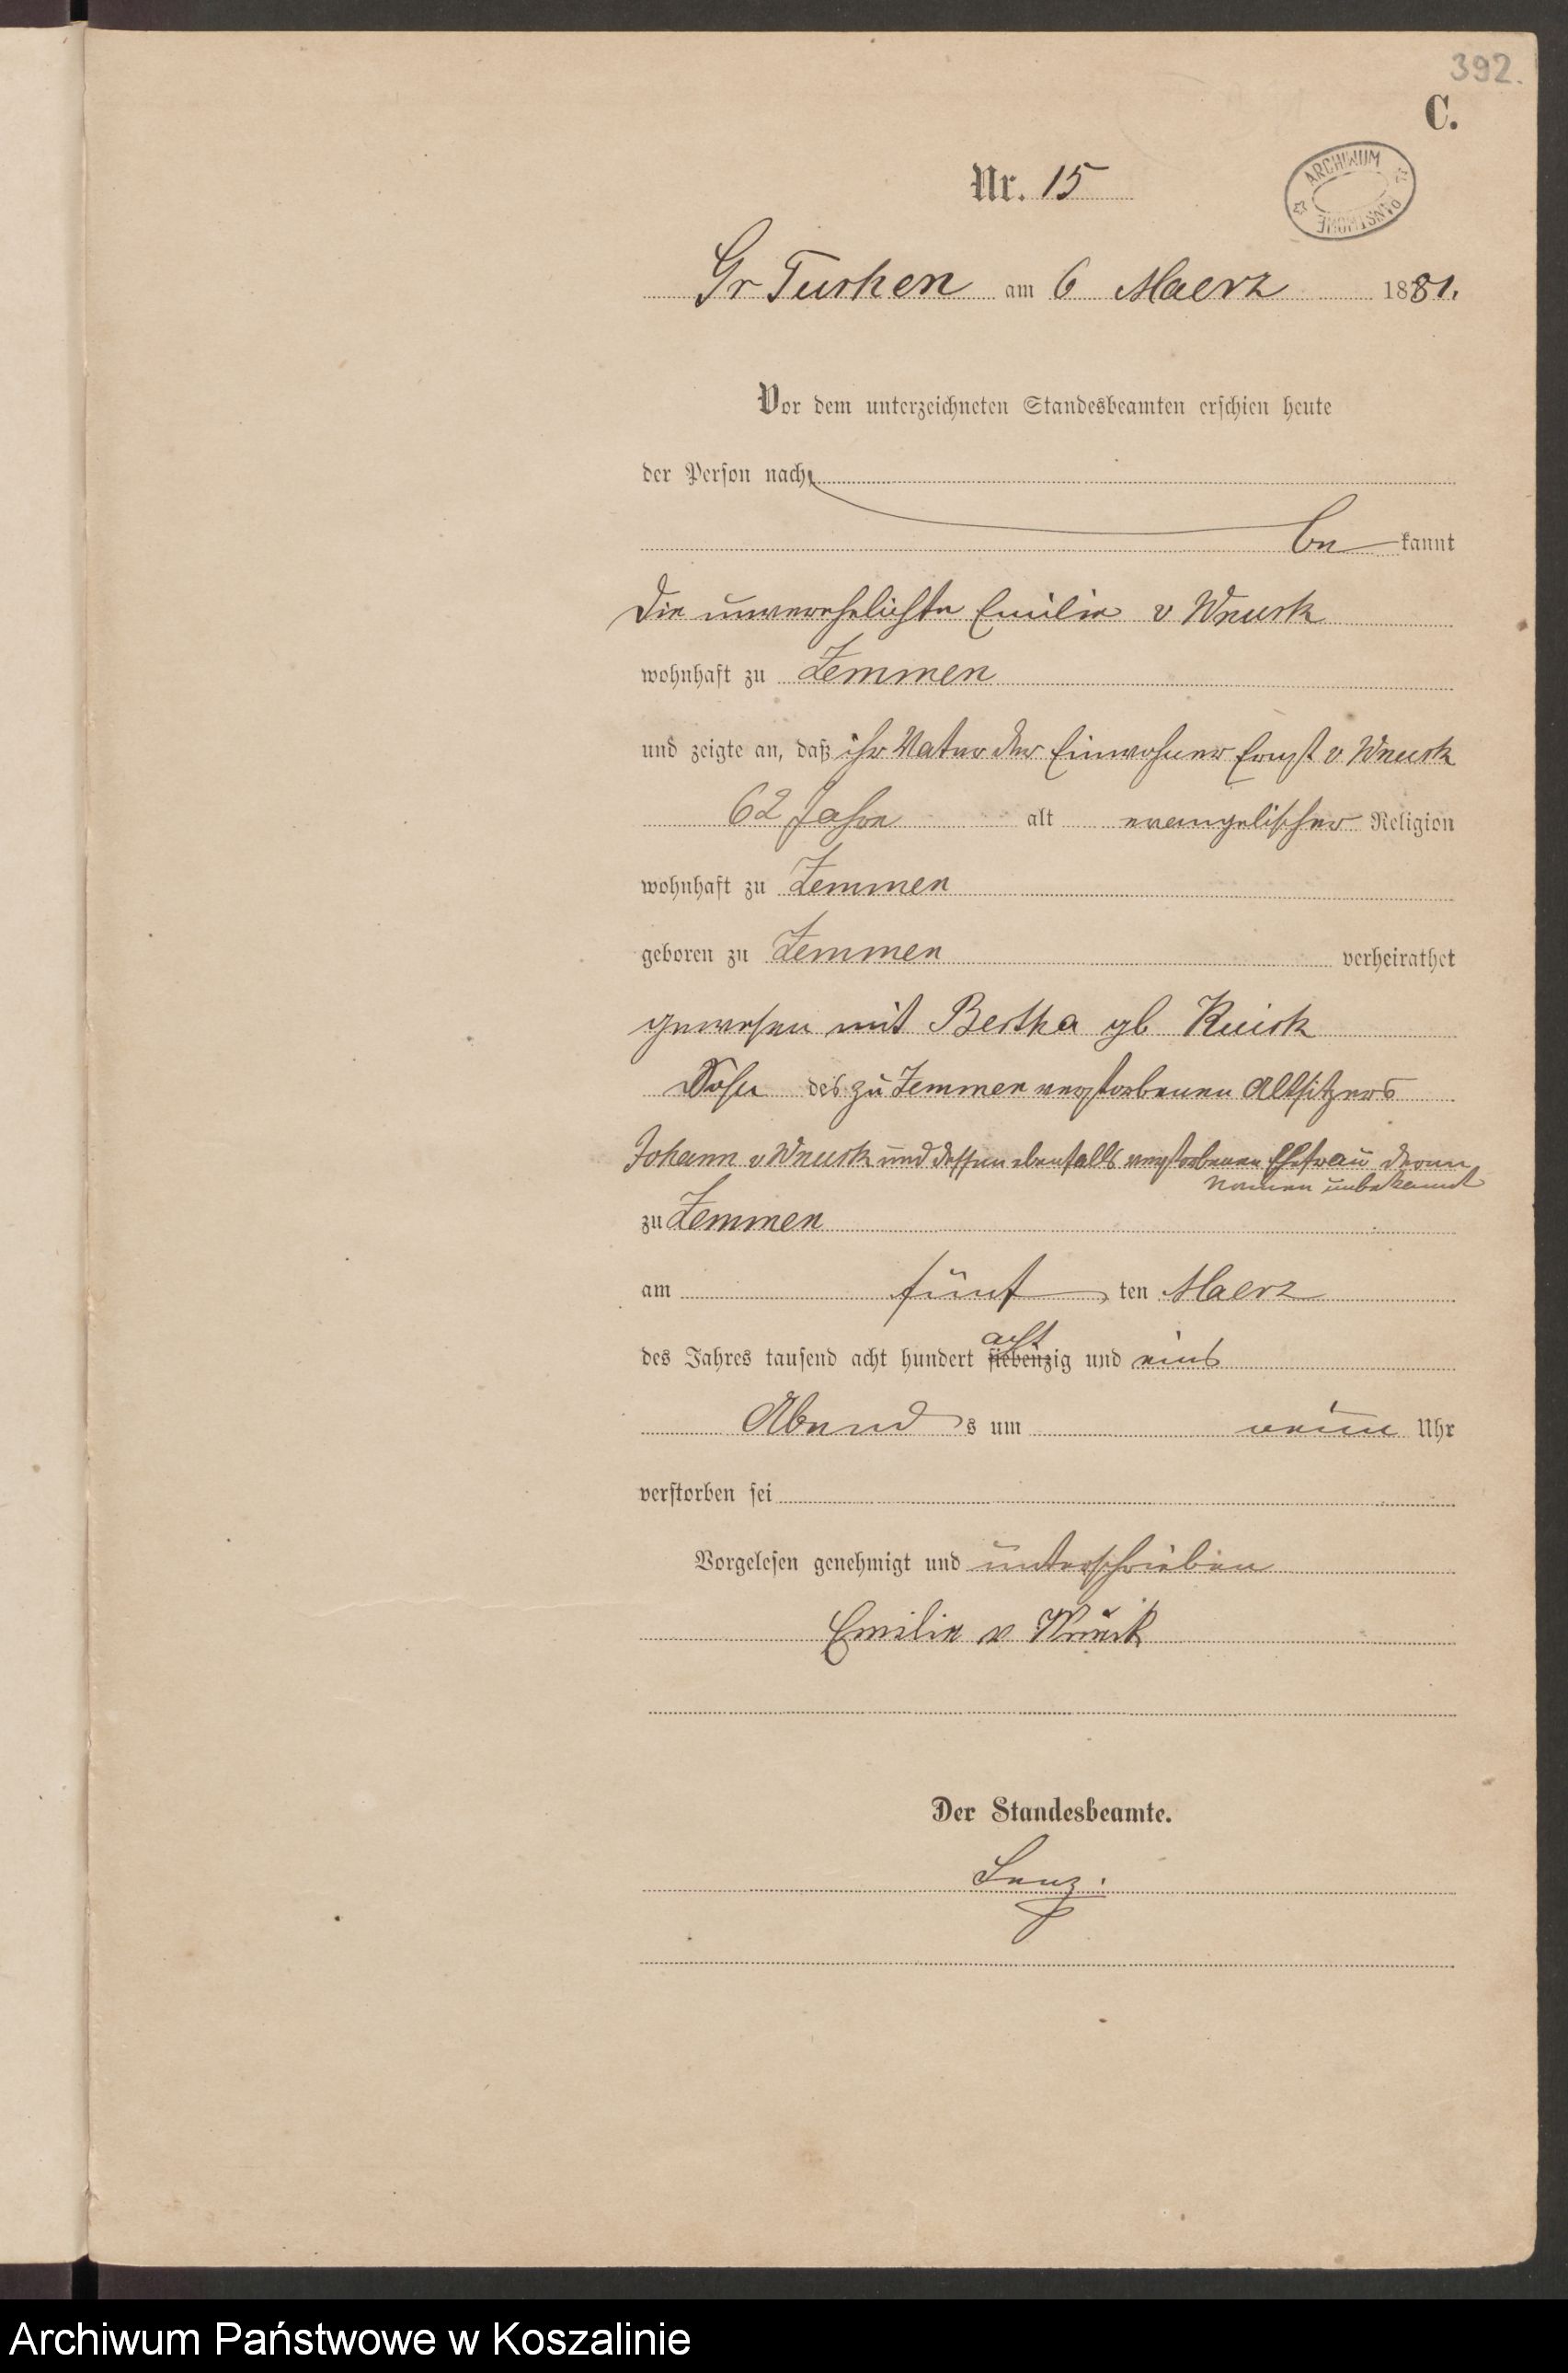 392.
C.
ARCHIWUM
PAŃSTWOWE
Nr. 15
Gr Tuchen am 6 Maerz 1881.
Vor dem unterzeichneten Standesbeamten erschien heute
der Person nach
be kannt
die unverehelichte Emilie v Wnuck
wohnhaft zu Zemmen
und zeigte an, daß ihr Vater der Einwohner Ernst v Wnuck
62 Jahre alt evangelischer Religion
wohnhaft zu Zemmen
geboren zu Zemmen verheirathet
gewesen mit Bertha gb
Sohn des zu Zemmen verstorbenen Altsitzers
Johann v Wnuck und dessen ebenfalls verstorbenen Ehefrau deren
Namen unbekannt
zu Zemmen
am fünf ten Maerz
acht
des Jahres tausend acht hundert siebenzig und eins
Abend s um neun Uhr
verstorben sei
Vorgelesen genehmigt und unterschrieben
Emilie v Wnuck
Der Standesbeamte.
Lenz.
Archiwum Państwowe w Koszalinie